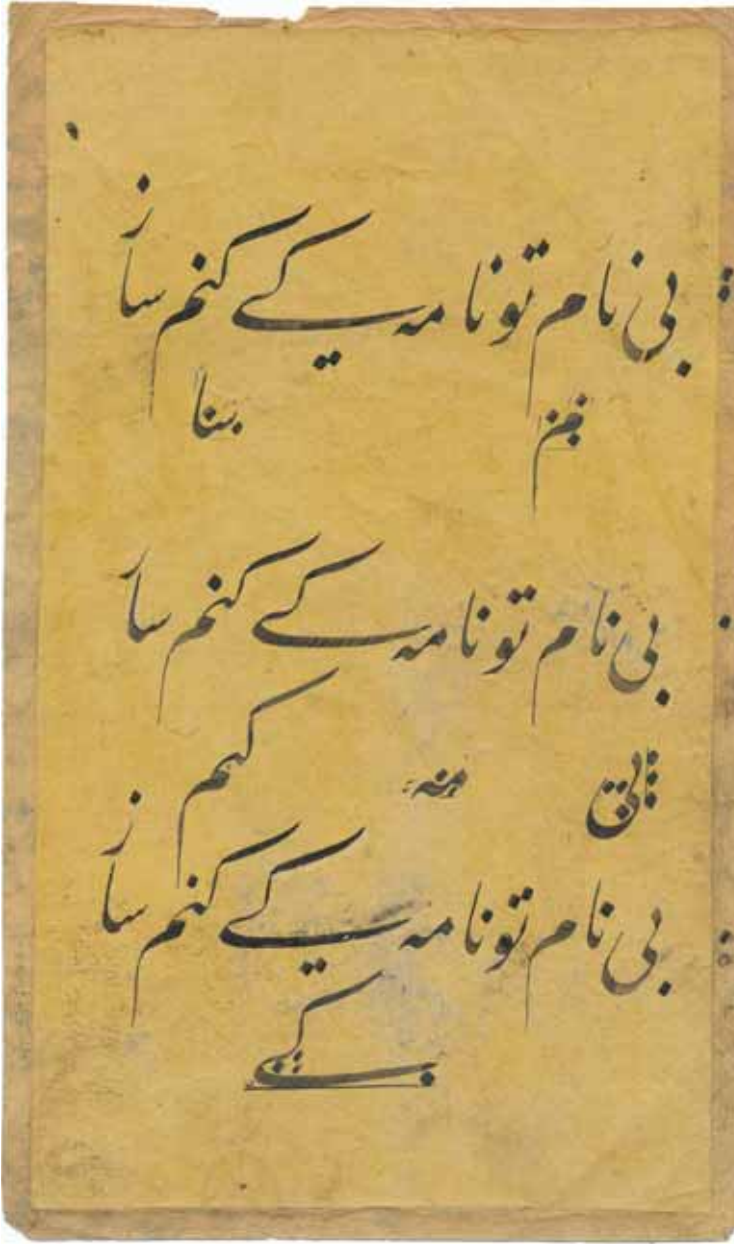 بی نام تو نامه کی کنم ساز
بی نام تو نامه کی کنم سا
کنم
بی نام تو نامه کی کنم ساز
کی